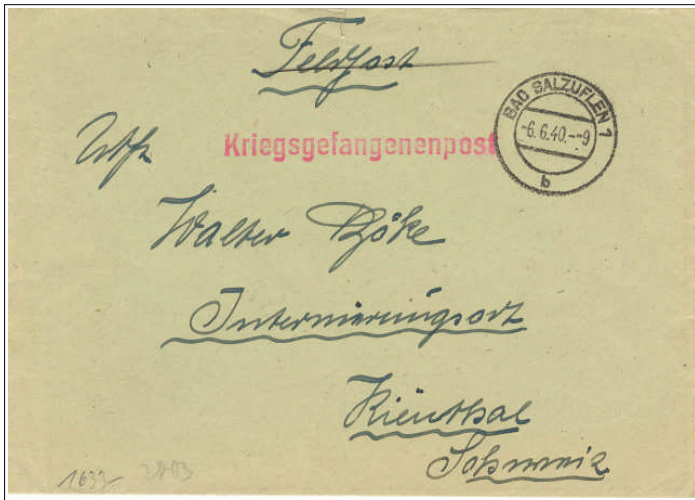 Feldpost
BAD SALZUFLEN 1
-6.6.40.--9
b
Uffz
Kriegsgefangenenpost
Walter
Internierungsort
Kienthal
Schweiz
1633-